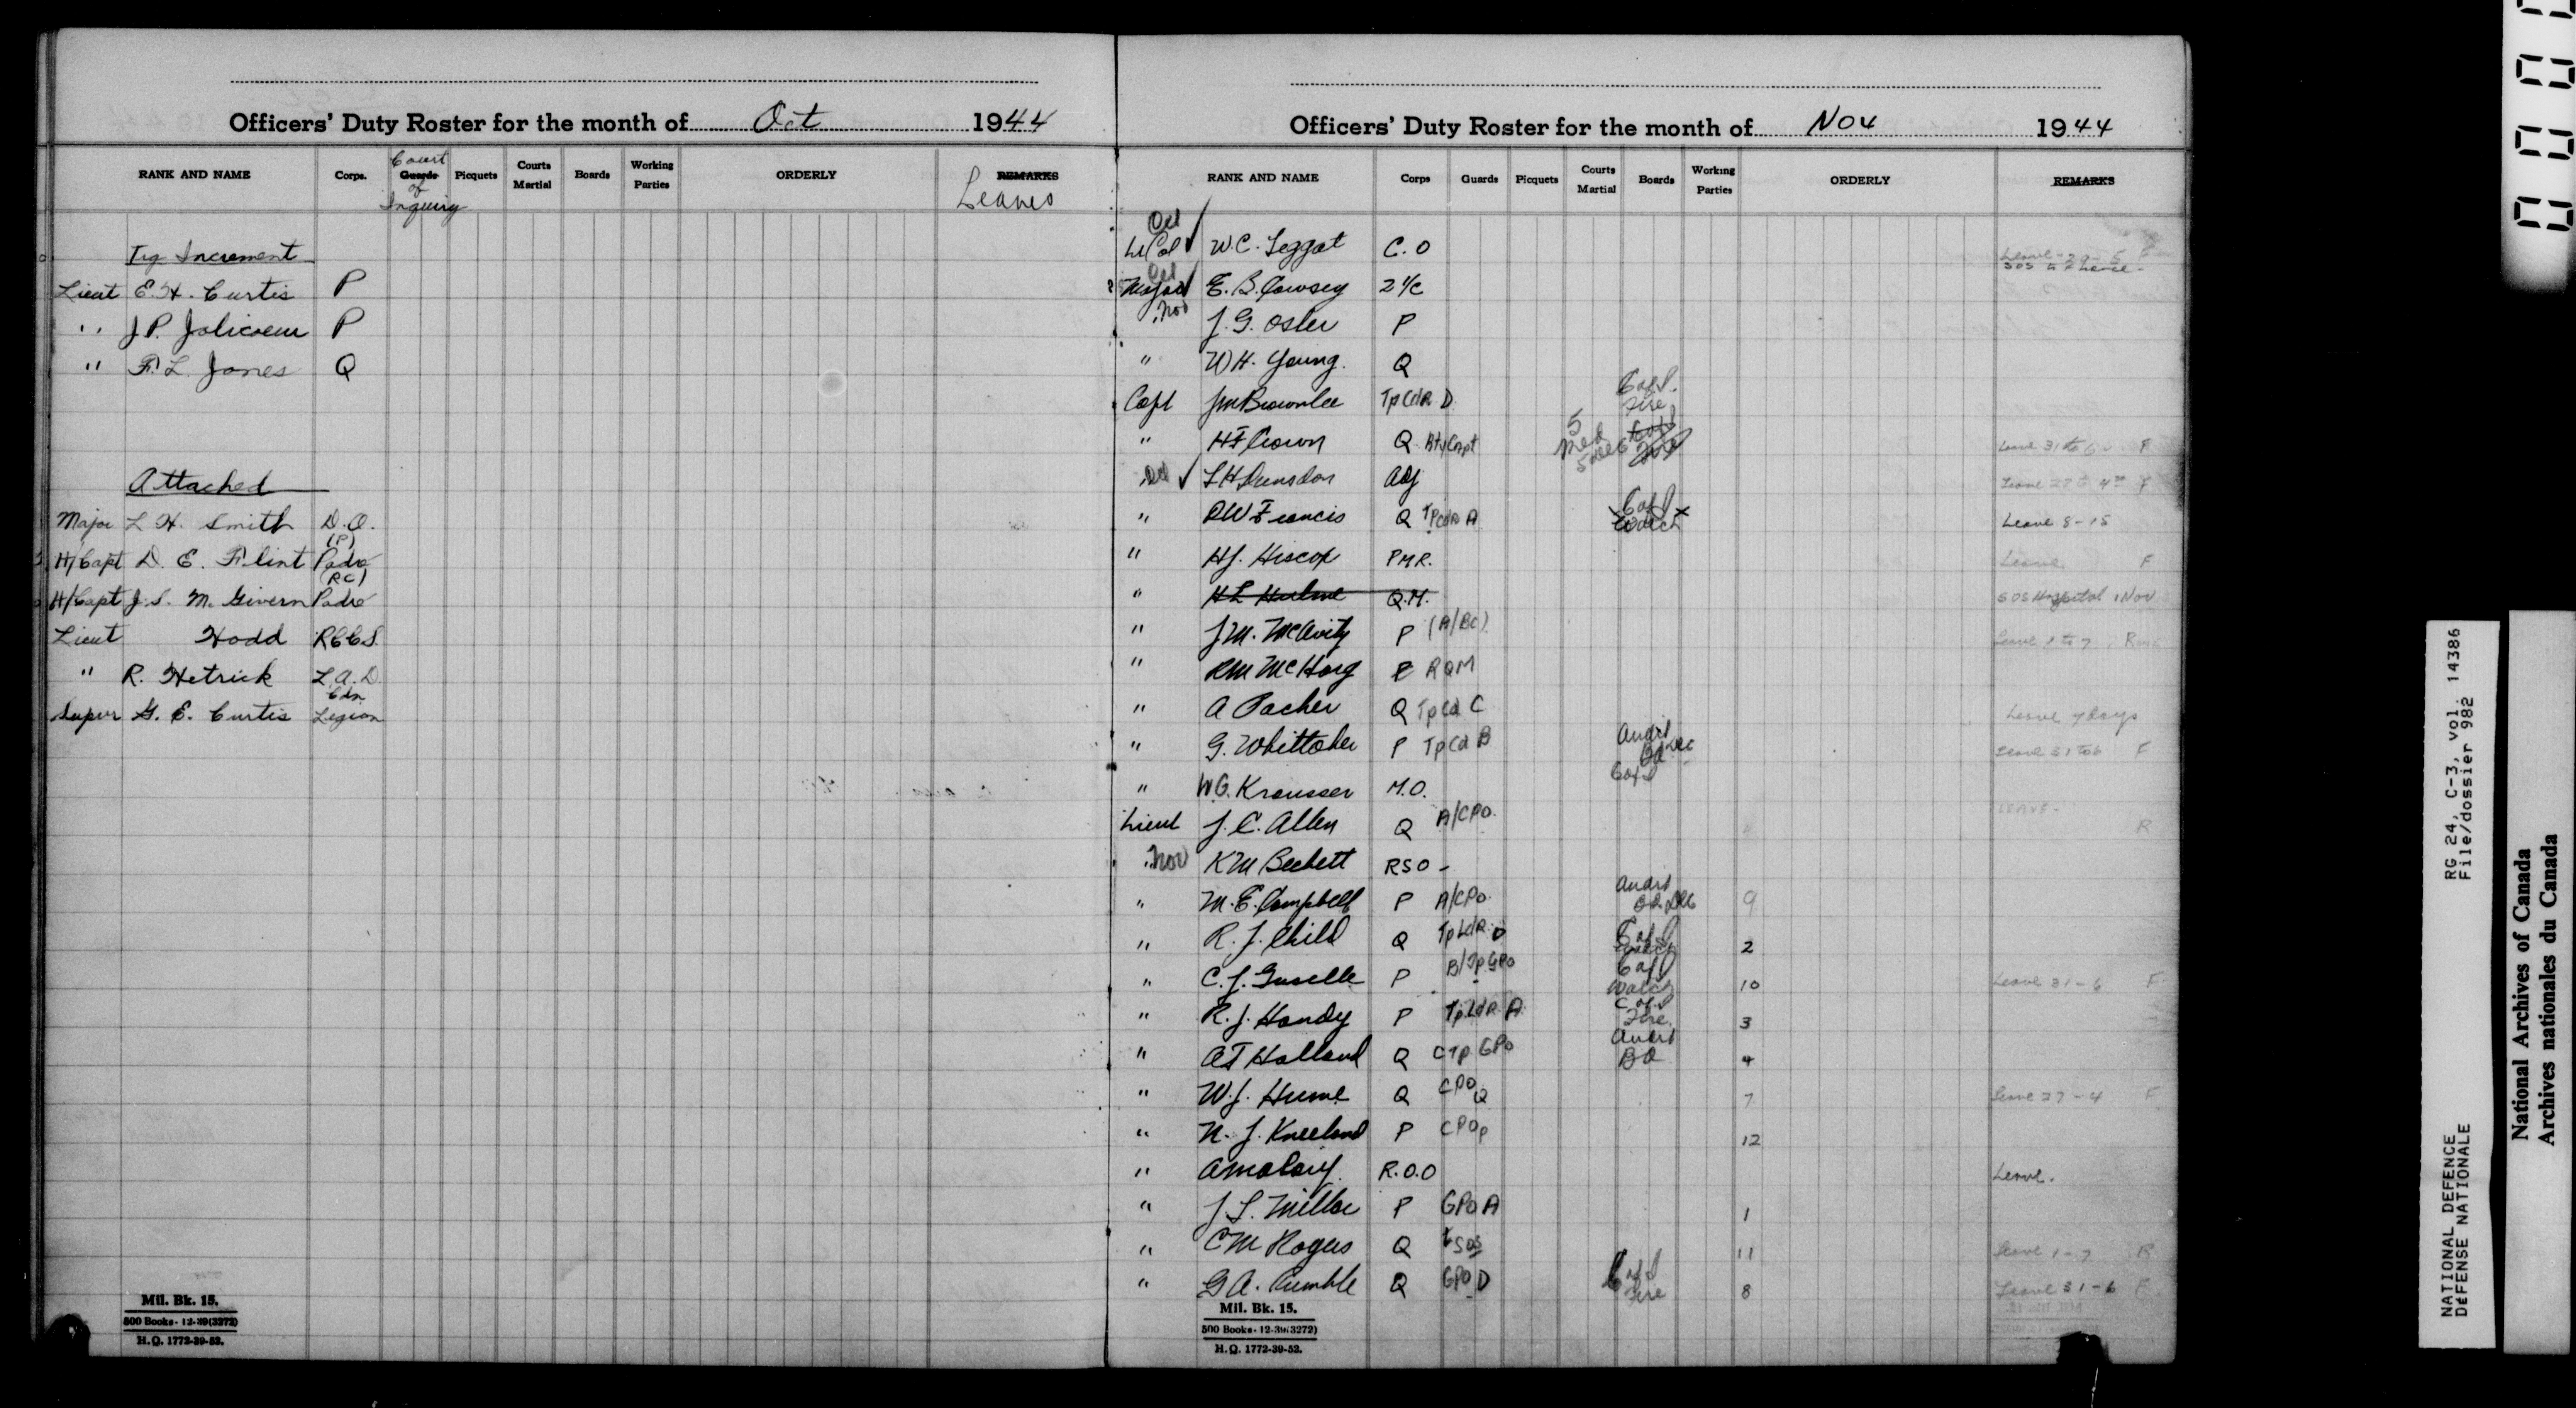 Officers' Duty Roster for the month of Oct 1944
RANK AND NAME Corps. Court Guards of Inquiry Picquets Courts Martial Boards Working Parties ORDERLY REMARKS Leaves
Trg Increment
Lieut E. H. Curtis P
" J P. Jolicoeur P
" F. L. Jones Q
Attached
Major L H. Smith D.O.
H/Capt D. E. Flint (P) Padre
H/Capt J. S. McGivern (RC) Padre
Lieut Hodd RCCS.
" R. Hetrick L.A.D.
Superv G. E. Curtis Cdn Legion
Mil. Bk. 15.
500 Books-12-39(3272)
H.Q. 1772-39-52.
Officers' Duty Roster for the month of Nov 1944
RANK AND NAME Corps Guards Picquets Courts Martial Boards Working Parties ORDERLY REMARKS
Oct
Lt Col W.C. Leggat C.O Leave
Oct
Major E.B. Cowsey 2 I/C
Nov J.G. Osler P
" W H. Young. Q
Capt JM Brownlee Tp Cdr D C of I Fire
" H F Crown Q Bty Capt Leave 31 to 6 F
L H Dunsdon Adj Leave 28 to 4 F
" R W Francis Q Tp Cdr A C of I Watch Leave 8-15
" H J. Hiscox PMR. Leave F
" H L Hulme Q.M. SOS Hospital 1 Nov
" J M. McAvity P (A/BC) Leave 1 to 7
" RM McHarg P RQM
" A Pacher Q Tp Cd C Leave 7 days
" G. Whittaker P Tp Cd B Audit Bd Dec Leave 31 to 6 F
" W.G. Krausser M.O. C of I
Lieut J. C. Allen Q A/CPO. LEAVE - R
Nov K M Beckett RSO -
" M.E. Campbell P A/CPO. Audit Bd Dec 9
" R. J. Child Q Tp Ldr D C of I Watch 2
" C. J. Guselle P B/Tp GPO C of I Watch 10 Leave 31-6 F
" R. J. Handy P Tp Ldr A C of I Fire 3
" A T Holland Q C Tp GPO Audit Bd 4
" W. J. Hume Q CPO Q 7 Leave 27-4 F
" N. J. Kneeland P CPO P 12
" R.O.O Leave.
" J. L. Millar P GPO A 1
" C M Rogers Q SOS 11 Leave 1-7 R
" G A. Rumble Q GPO D C of I Fire 8 Leave 31-6 F
Mil. Bk. 15.
500 Books-12-39(3272)
H.Q. 1772-39-52.
RG 24, C-3, vol. 14386
File/dossier 982
NATIONAL DEFENCE
DÉFENSE NATIONALE
National Archives of Canada
Archives nationales du Canada